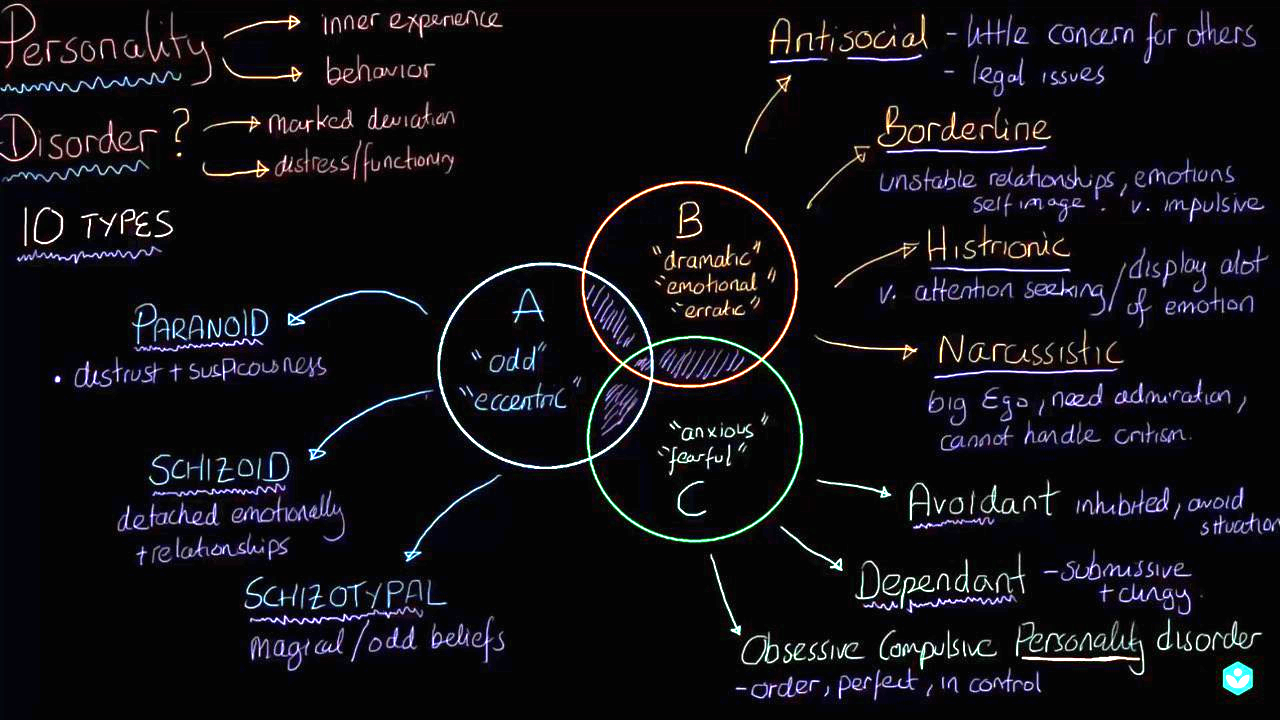 Personality
inner experience
behavior
Disorder ?
marked deviation
distress/functioning
10 TYPES
A
"odd"
"eccentric"
PARANOID
• distrust + suspicousness
SCHIZOID
detached emotionally
+ relationships
SCHIZOTYPAL
magical/odd beliefs
B
"dramatic"
"emotional"
"erratic"
Antisocial - little concern for others
- legal issues
Borderline
unstable relationships, emotions
self image. v. impulsive
Histrionic
v. attention seeking / display alot
of emotion
Narcissistic
big Ego, need admiration,
cannot handle critism.
"anxious"
"fearful"
C
Avoidant inhibited, avoid
situation
Dependant - submissive
+ clingy.
Obsessive Compulsive Personality disorder
- order, perfect, in control